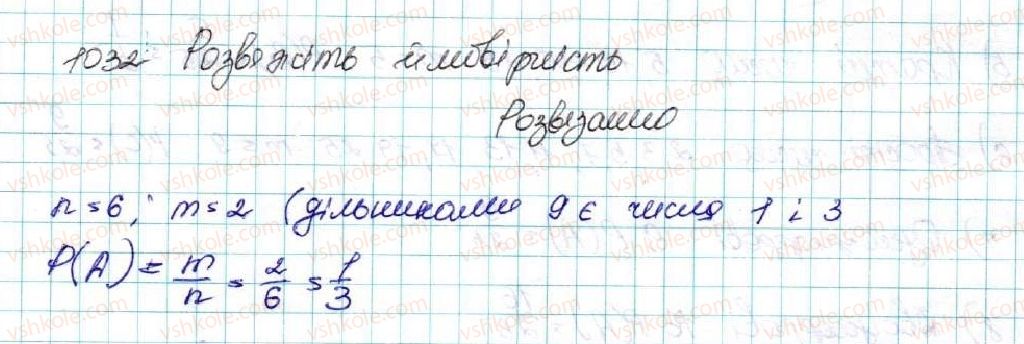 1032. Розвяжіть ймовірність
Розвязання
n = 6; m = 2 (дільниками 9 є числа 1 і 3
P(A) = m/n = 2/6 = 1/3